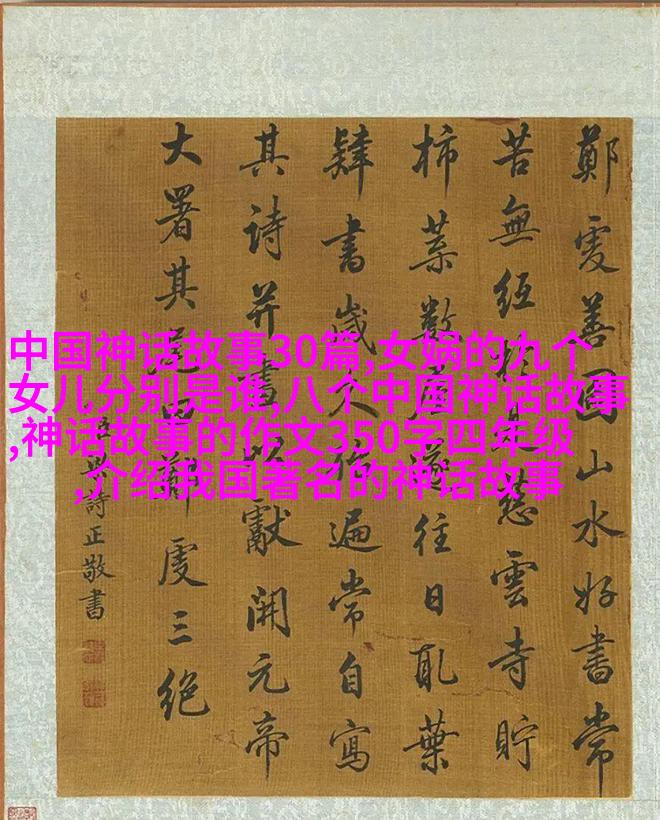 鄭虔善圖山水好書常
苦無紙於是慈雲寺貯
柿葉數屋遂往日取葉
肄書歲久殆遍常自寫
其詩并畫以獻開元帝
大署其尾曰鄭虔三絕
臣梁詩正敬書
中国神话故事30篇,女娲的九个
女儿分别是谁,八个中国神话故事
,神话故事的作文350字四年级
,介绍我国著名的神话故事